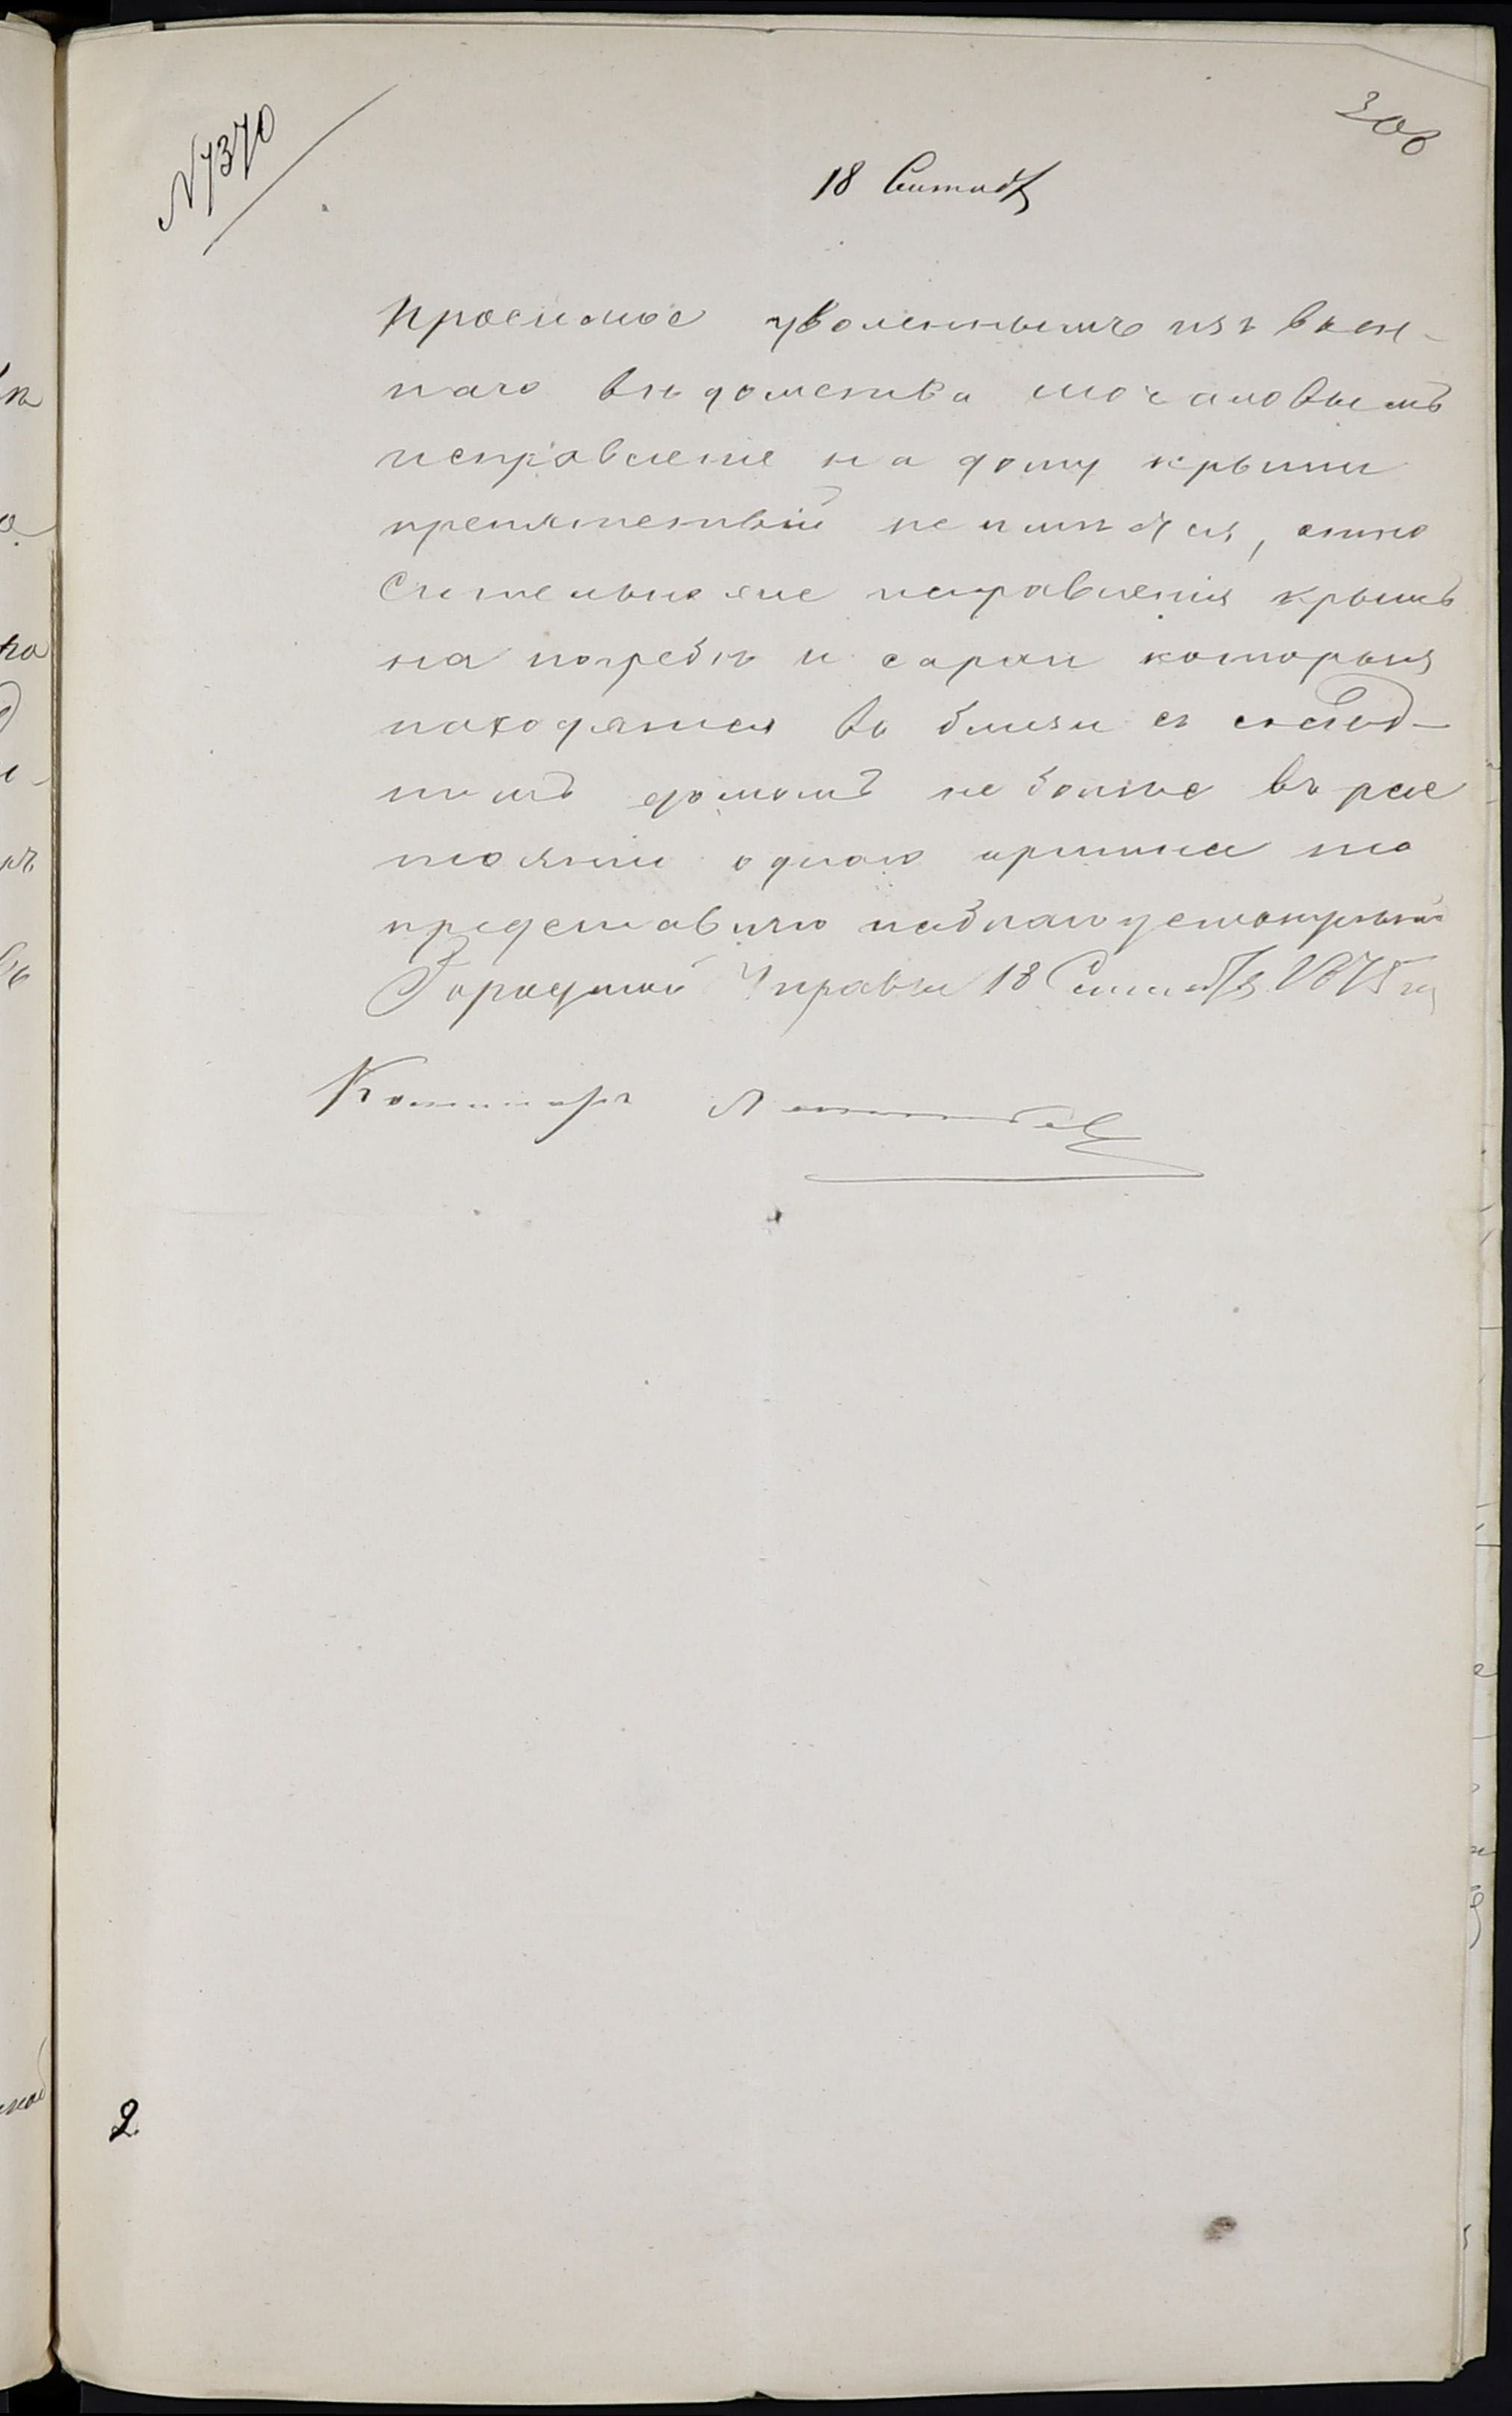 № 7370
308
18 Сентяб
Просимое уволеннымъ изъ воен-
наго ведомства Мочаловымъ
исправление на дому крыши
препятствій не имѣется, отно
сительно же исправленія крышъ
на погребѣ и сараи которыя
находятся въ близи съ сосѣд-
нимъ домомъ не болѣе въ рас
тояніи одного аршина то
представляю на благоусмотрѣніе
Городской Управы 18 Сентября 1875 г.
2